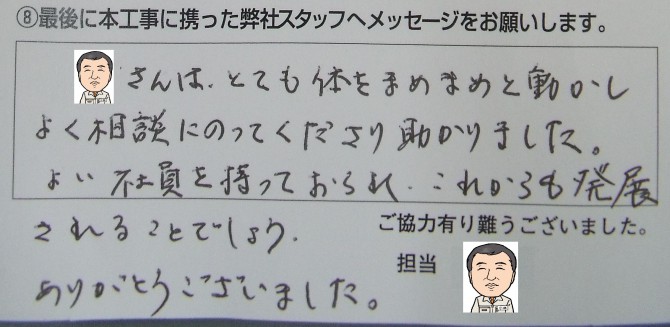 ⑧最後に本工事に携った弊社スタッフへメッセージをお願いします。
さんは、とても体をまめまめと動かし
よく相談にのってくださり助かりました。
よい社員を持っておられ、これからも発展
されることでしょう。
ご協力有り難うございました。
担当
ありがとうございました。